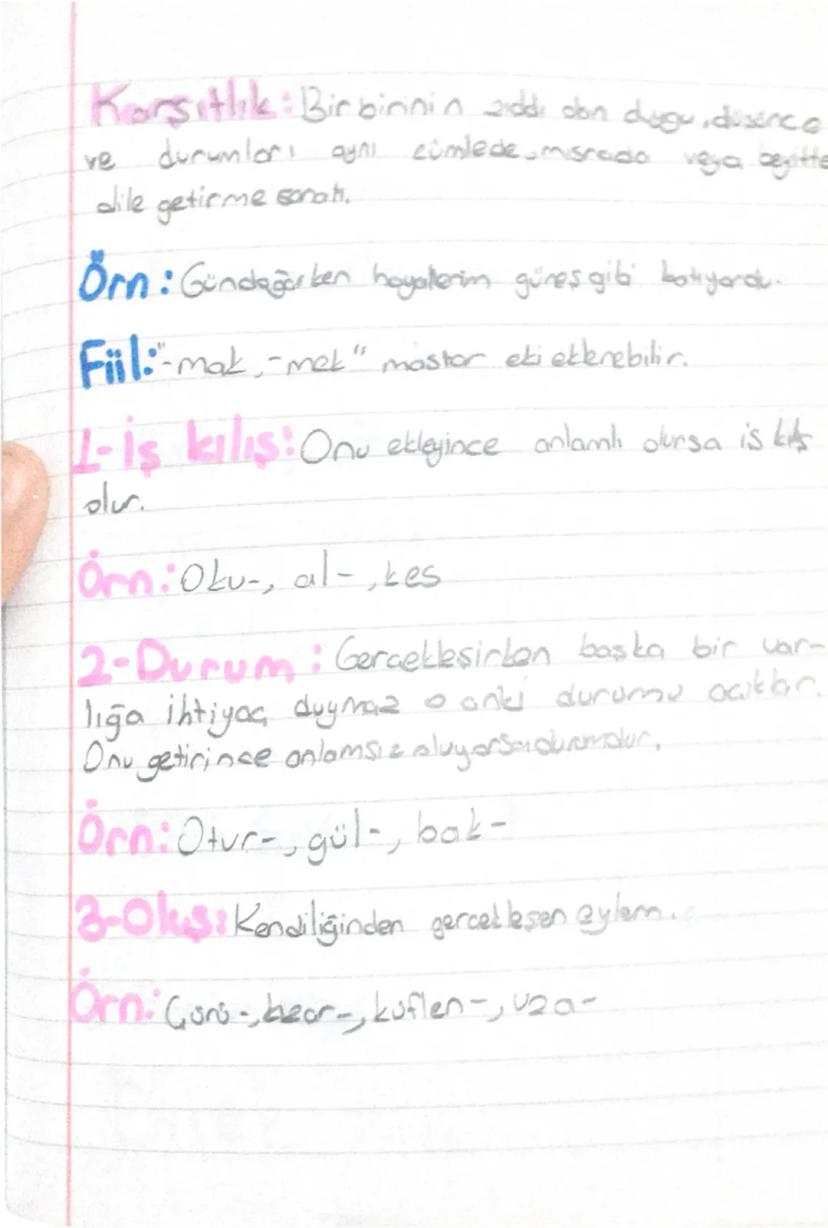 Karşıtlık: Birbirinin zıddı olan duygu, düşünce
ve durumları aynı cümlede, mısrada veya beyitte
dile getirme sanatı.
Örn: Gündoğarken hayallerim güneş gibi batıyordu.
Fiil: "-mak, -mek" mastar eki eklenebilir.
1-İş kılış: Onu ekleyince anlamlı olursa iş kılış
olur.
Örn: Oku-, al-, kes
2-Durum: Gerçekleşirken başka bir var-
lığa ihtiyaç duymaz o anki durumu açıklar.
Onu getirince anlamsız oluyorsa durumdur.
Örn: Otur-, gül-, bak-
3-Oluş: Kendiliğinden gerçekleşen eylem.
Örn: Çürü-, küflen-, uza-